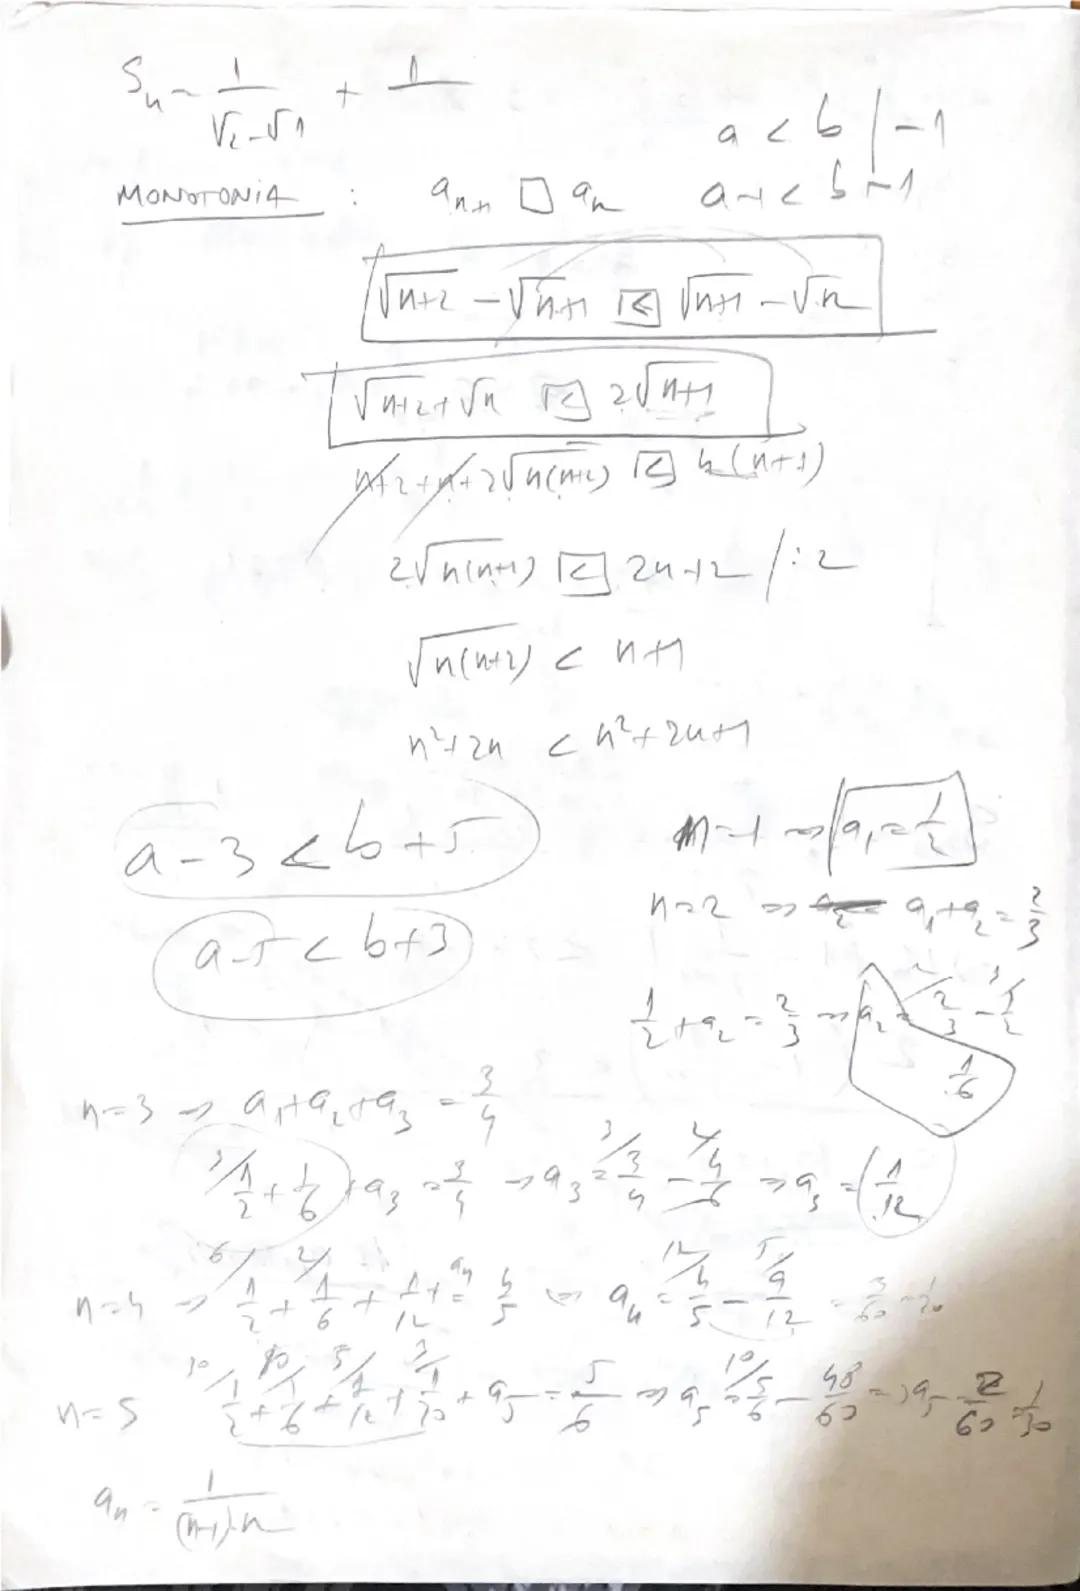 Sn = 1/(√2-√1) + 1/
a < b | -1
MONOTONIA : a_{n+1} □ a_n
a-1 < b-1
√(n+2) - √(n+1) [<] √(n+1) - √n
√(n+2) + √n [<] 2√(n+1)
n+2+n+2√(n(n+2)) [<] 4(n+1)
2√(n(n+1)) [<] 2n+2 /:2
√(n(n+2)) < n+1
n²+2n < n²+2n+1
a-3 < b+5
a-5 < b+3
n=1 => a₁=1/2
n=2 => a₁+a₂=2/3
1/2+a₂=2/3 => a₂= 2/3 - 1/2
1/6
n=3 => a₁+a₂+a₃ = 3/4
1/2+1/6+a₃=3/4 => a₃=3/4-4/6 => a₃=1/12
n=4 => 1/2+1/6+1/12+a₄=4/5 => a₄=4/5-9/12=3/60=1/20
n=5 1/2+1/6+1/12+1/20+a₅=5/6 => a₅=5/6-48/60 => a₅=2/60=1/30
a_n = 1/((n+1)·n)